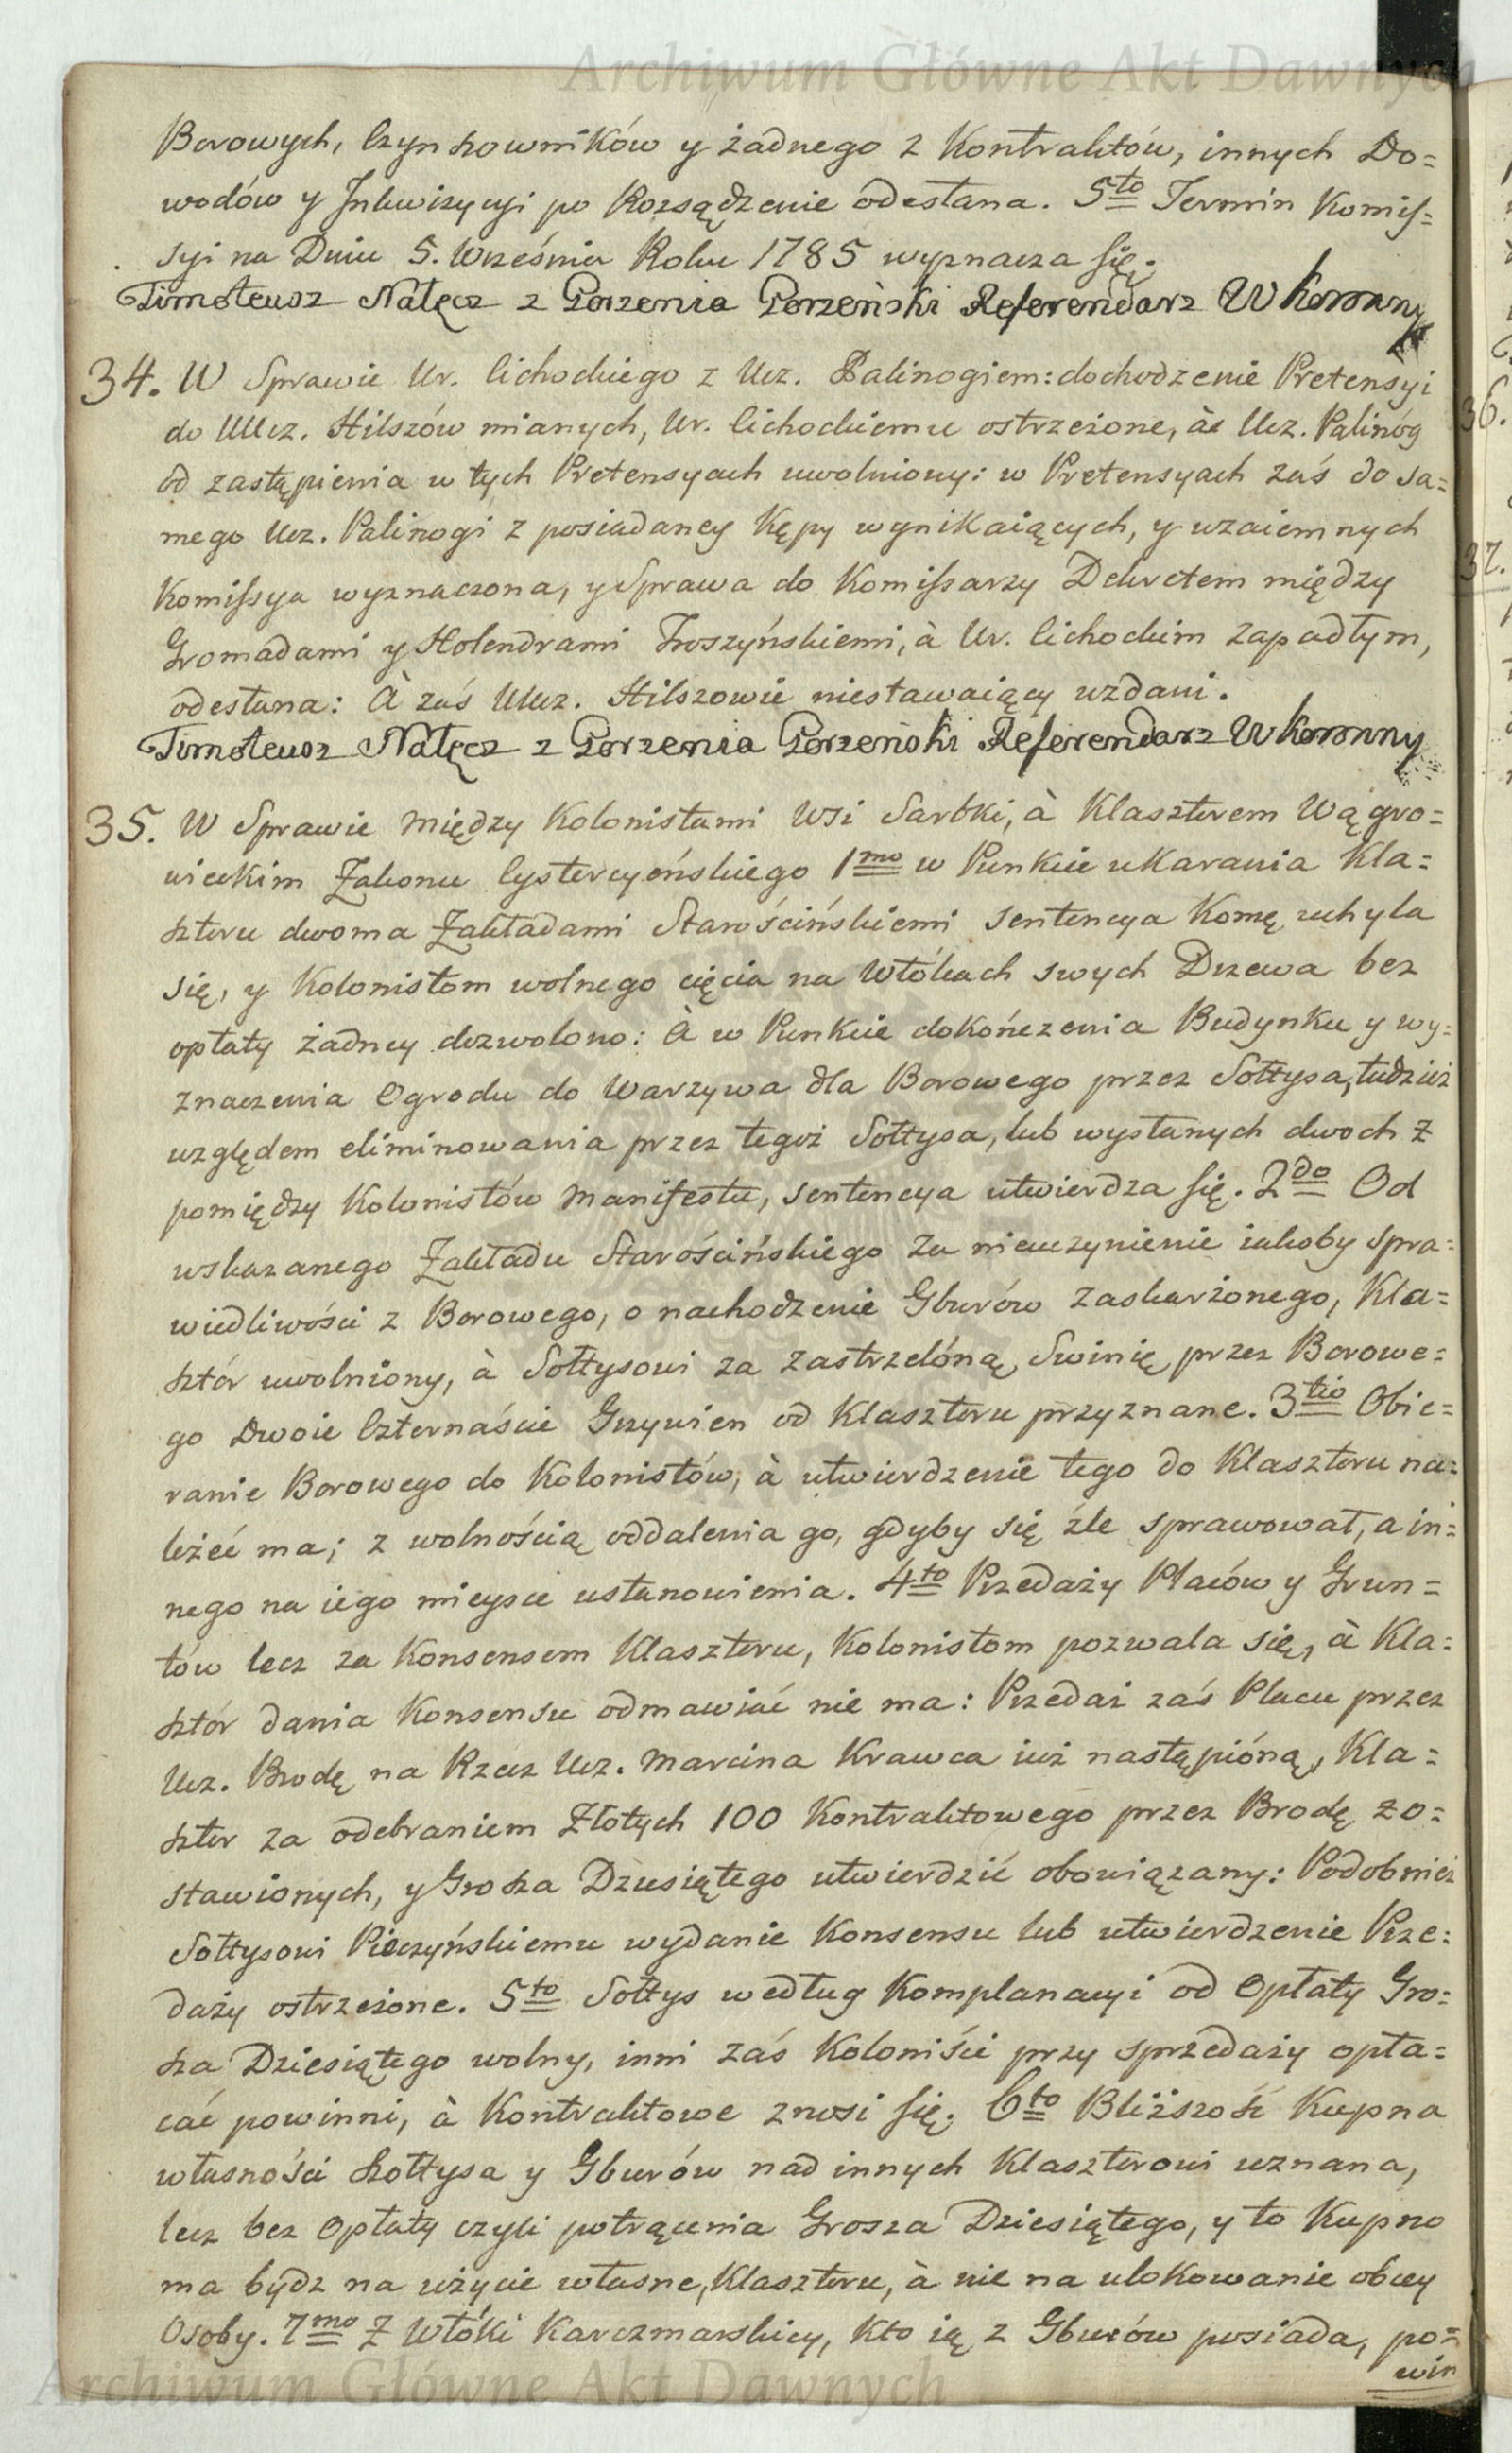 Archiwum Główne Akt Dawnych
Borowych, Czynszowników y żadnego z Kontraktów, innych Do=
wodów y Inkwizycyi po Rozsądzenie odesłana. 5to Termin Komis=
syi na Dniu 5. Września Roku 1785 wyznacza się.
Timoteusz Nałęcz z Gorzenia Gorzeński Referendarz W Koronny
34. W Sprawie Ur. Cichockiego z Ucz. Palinogiem: dochodzenie Pretensyi
do UUcz. Hilszów mianych, Ur. Cichockiemu ostrzeżone, à Ucz. Palinóg
od zastąpienia w tych Pretensyach uwolniony: w Pretensyach zaś do sa=
mego Ucz. Palinogi z posiadaney Kępy wynikaiących, y wzaiemnych
Komissya wyznaczona, y Sprawa do Komissarzy Dekretem między
Gromadami y Holendrami Troszyńskiemi, à Ur. Cichockim zapadłym,
odesłana: À zaś UUcz. Hilszowie niestawaiący wzdani.
Timoteusz Nałęcz z Gorzenia Gorzeński Referendarz W Koronny
35. W Sprawie między Kolonistami Wsi Sarbki, à Klasztorem Wągro=
wieckim Zakonu Cystercyeńskiego 1mo w Punkcie ukarania Kla=
sztoru dwoma Zakładami Starościńskiemi Sentencya Komę uchyla
się, y Kolonistom wolnego cięcia na Włókach swych Drzewa bez
opłaty żadney dozwolono: À w Punkcie dokończenia Budynku y wy=
znaczenia Ogrodu do Warzywa dla Borowego przez Sołtysa, tudzież
względem eliminowania przez tegoż Sołtysa, lub wysłanych dwoch z
pomiędzy Kolonistów Manifestu, Sentencya utwierdza się. 2do Od
wskazanego Zakładu Starościńskiego za nieuczynienie iakoby spra=
wiedliwości z Borowego, o nachodzenie Gburów zaskarżonego, Kla=
sztór uwolniony, à Sołtysowi za zastrzelóną Swinię przez Borowe=
go Dwoie Czternaście Grzywien od Klasztoru przyznane. 3tio Obie=
ranie Borowego do Kolonistów, à utwierdzenie tego do Klasztoru na=
leżeć ma; z wolnością oddalenia go, gdyby się źle sprawował, a in=
nego na iego mieysce ustanowienia. 4to Przedaży Placów y Grun=
tów lecz za Konsensem Klasztoru, Kolonistom pozwala się, à Kla=
sztór dania Konsensu odmawiać nie ma: Przedaż zaś Placu przez
Ucz. Brodę na Rzecz Ucz. Marcina Krawca iuż nastąpióną, Kla=
sztor za odebraniem Złotych 100 Kontraktowego przez Brodę zo=
stawionych, y Grosza Dziesiątego utwierdzić obowiązany: Podobnież
Sołtysowi Pieczyńskiemu wydanie Konsensu lub utwierdzenie Prze=
daży ostrzeżone. 5to Sołtys według Komplanacyi od Opłaty Gro=
sza Dziesiątego wolny, inni zaś Koloniści przy sprzedaży opła=
cać powinni, à Kontraktowe znosi się. 6to Bliższość Kupna
własności Sołtysa y Gburów nad innych Klasztorowi uznana,
lecz bez Opłaty czyli potrącenia Grosza Dziesiątego, y to Kupno
ma bydz na użycie własne, Klasztoru, à nie na ulokowanie obcey
Osoby. 7mo Z Włóki Karczmarskiey, kto ią z Gburów posiada, po=
win
Archiwum Główne Akt Dawnych
36.
37.